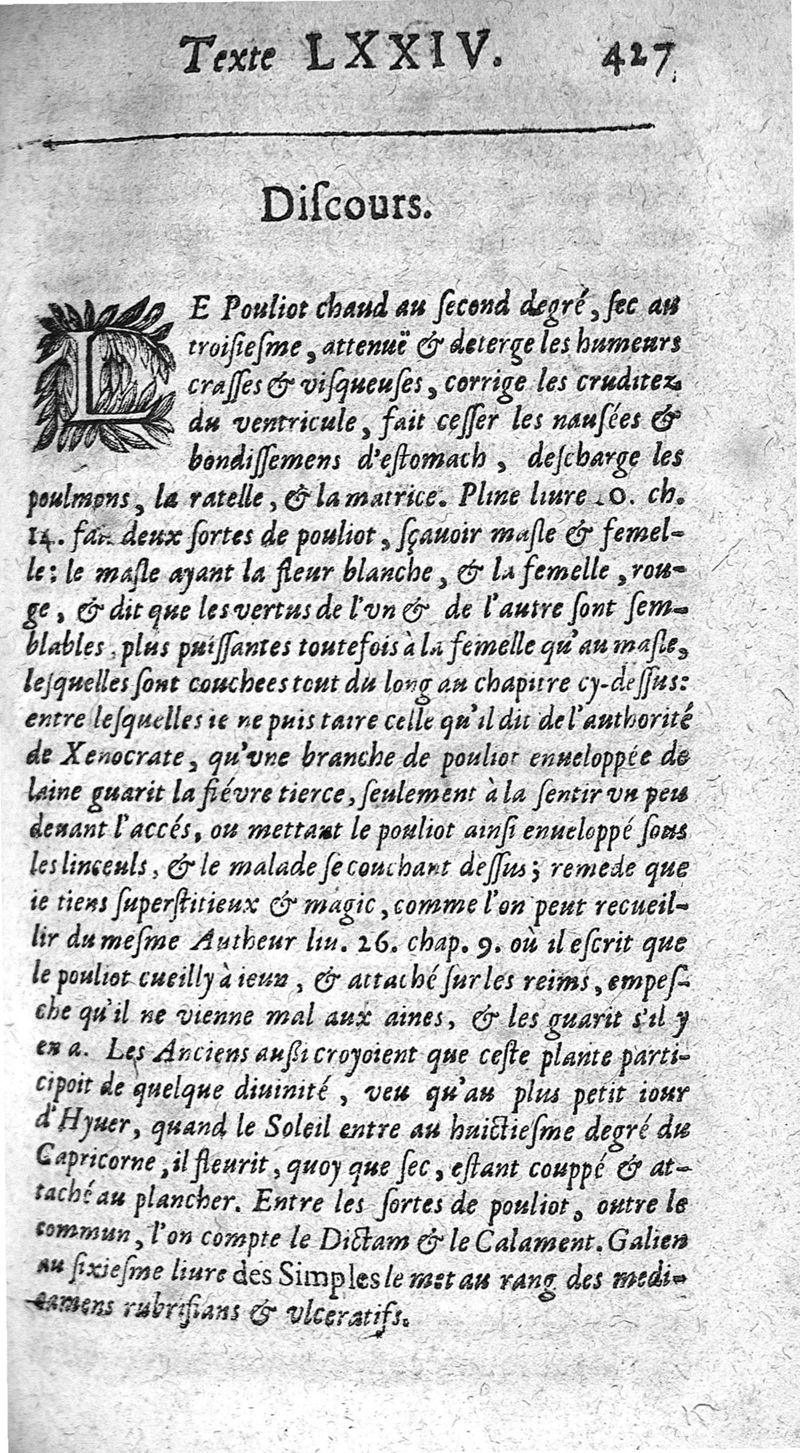 Texte LXXIV. 427
Diſcours.
LE Pouliot chaud au ſecond degré, ſec au
troiſieſme, attenuë & deterge les humeurs
craſſes & viſqueuſes, corrige les cruditez
du ventricule, fait ceſſer les nauſées &
bondiſſemens d'eſtomach, deſcharge les
poulmons, la ratelle, & la matrice. Pline liure 20. ch.
14. fait deux ſortes de pouliot, ſçauoir maſle & femel-
le: le maſle ayant la fleur blanche, & la femelle, rou-
ge, & dit que les vertus de l'vn & de l'autre ſont ſem-
blables, plus puiſſantes toutefois à la femelle qu'au maſle,
leſquelles ſont couchees tout du long au chapitre cy-deſſus:
entre leſquelles ie ne puis taire celle qu'il dit de l'authorité
de Xenocrate, qu'vne branche de pouliot enueloppée de
laine guarit la fiévre tierce, ſeulement à la ſentir vn peu
deuant l'accés, ou mettant le pouliot ainſi enueloppé ſous
les linceuls, & le malade ſe couchant deſſus; remede que
ie tiens ſuperſtitieux & magic, comme l'on peut recueil-
lir du meſme Autheur liu. 26. chap. 9. où il eſcrit que
le pouliot cueilly à ieun, & attaché ſur les reims, empeſ-
che qu'il ne vienne mal aux aines, & les guarit s'il y
en a. Les Anciens auſſi croyoient que ceſte plante parti-
cipoit de quelque diuinité, veu qu'au plus petit iour
d'Hyuer, quand le Soleil entre au huictieſme degré du
Capricorne, il fleurit, quoy que ſec, eſtant couppé & at-
taché au plancher. Entre les ſortes de pouliot, outre le
commun, l'on compte le Dictam & le Calament. Galien
au ſixieſme liure des Simples le met au rang des medi-
camens rubrifians & vlceratifs.